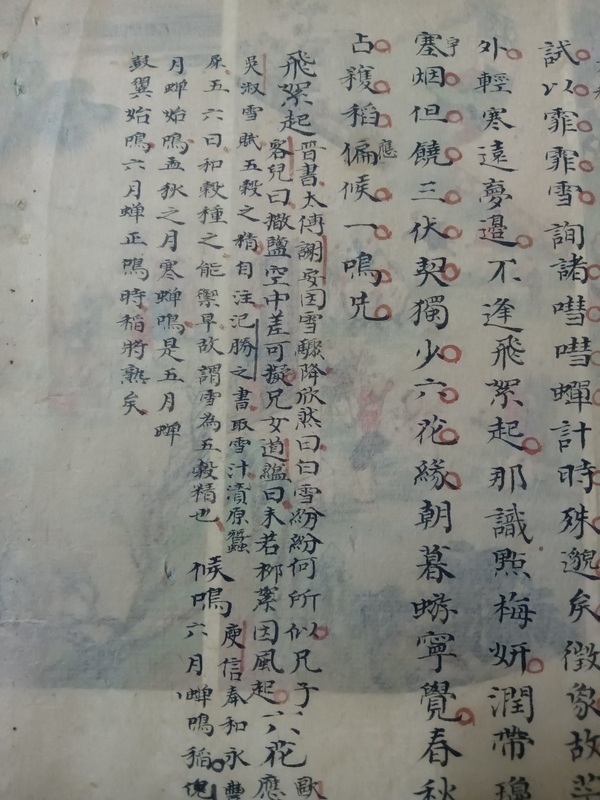 試以霏霏雪詢諸嘒嘒蟬計時殊邈矣徵象故
外輕寒遠夢邊不逢飛絮起那識點梅妍潤帶
塞烟但饒三伏契獨少六花緣朝暮蝣寧覺春秋
占穫稻偏應候一鳴先
飛絮起晋書太傅謝安因雪驟降欣然曰白雪紛紛何所似兄子
客兒曰撒鹽空中差可擬兄女道蘊曰未若柳葉因風起六花應
吳淑雪賦五穀之精自注氾勝之書取雪汁漬原蠶
屎五六日和穀種之能禦旱故謂雪為五穀精也候鳴庾信奉和永豐
月蟬始鳴孟秋之月寒蟬鳴是五月蟬六月蟬鳴稻
鼓翼始鳴六月蟬正鳴時稻將熟矣